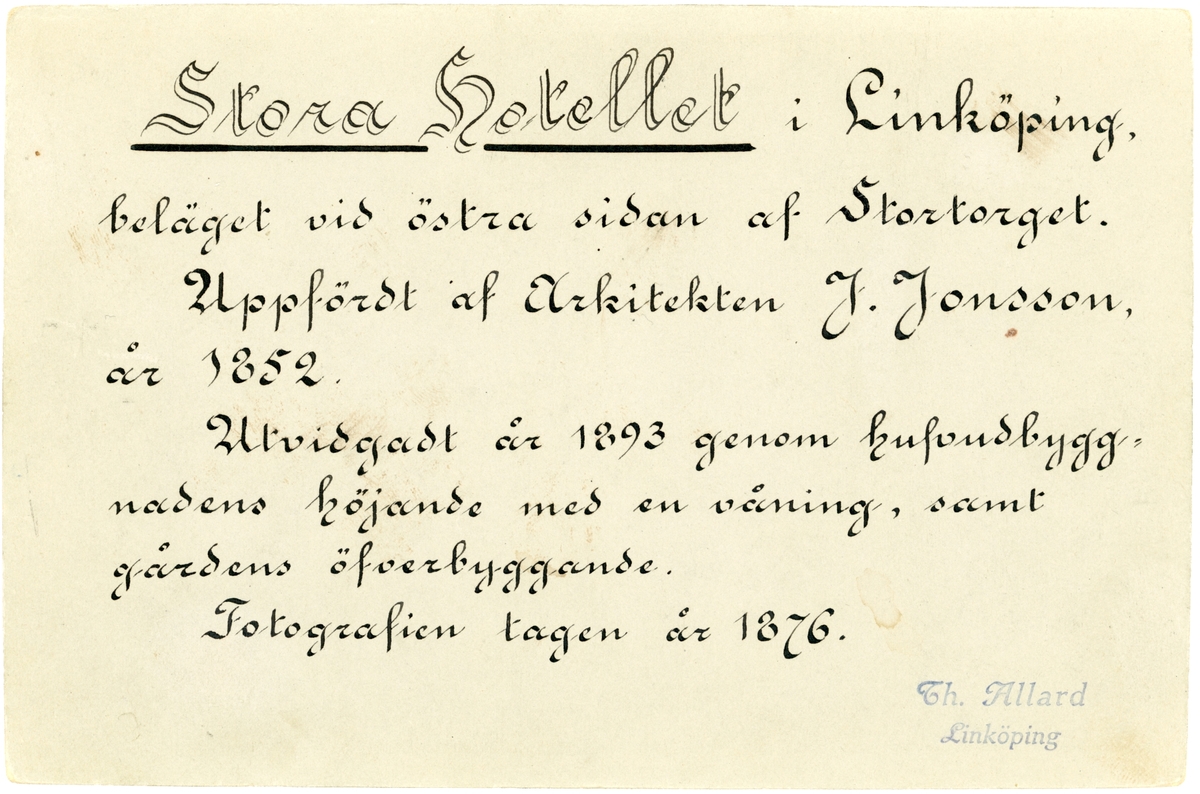 Stora Hotellet i Linköping,
beläget vid östra sidan af Stortorget.
Uppfördt af Arkitekten J. Jonsson,
år 1852.
Utvidgadt år 1893 genom hufvudbygg-
nadens höjande med en våning, samt
gårdens öfverbyggande.
Fotografien tagen år 1876.
Th. Allard
Linköping